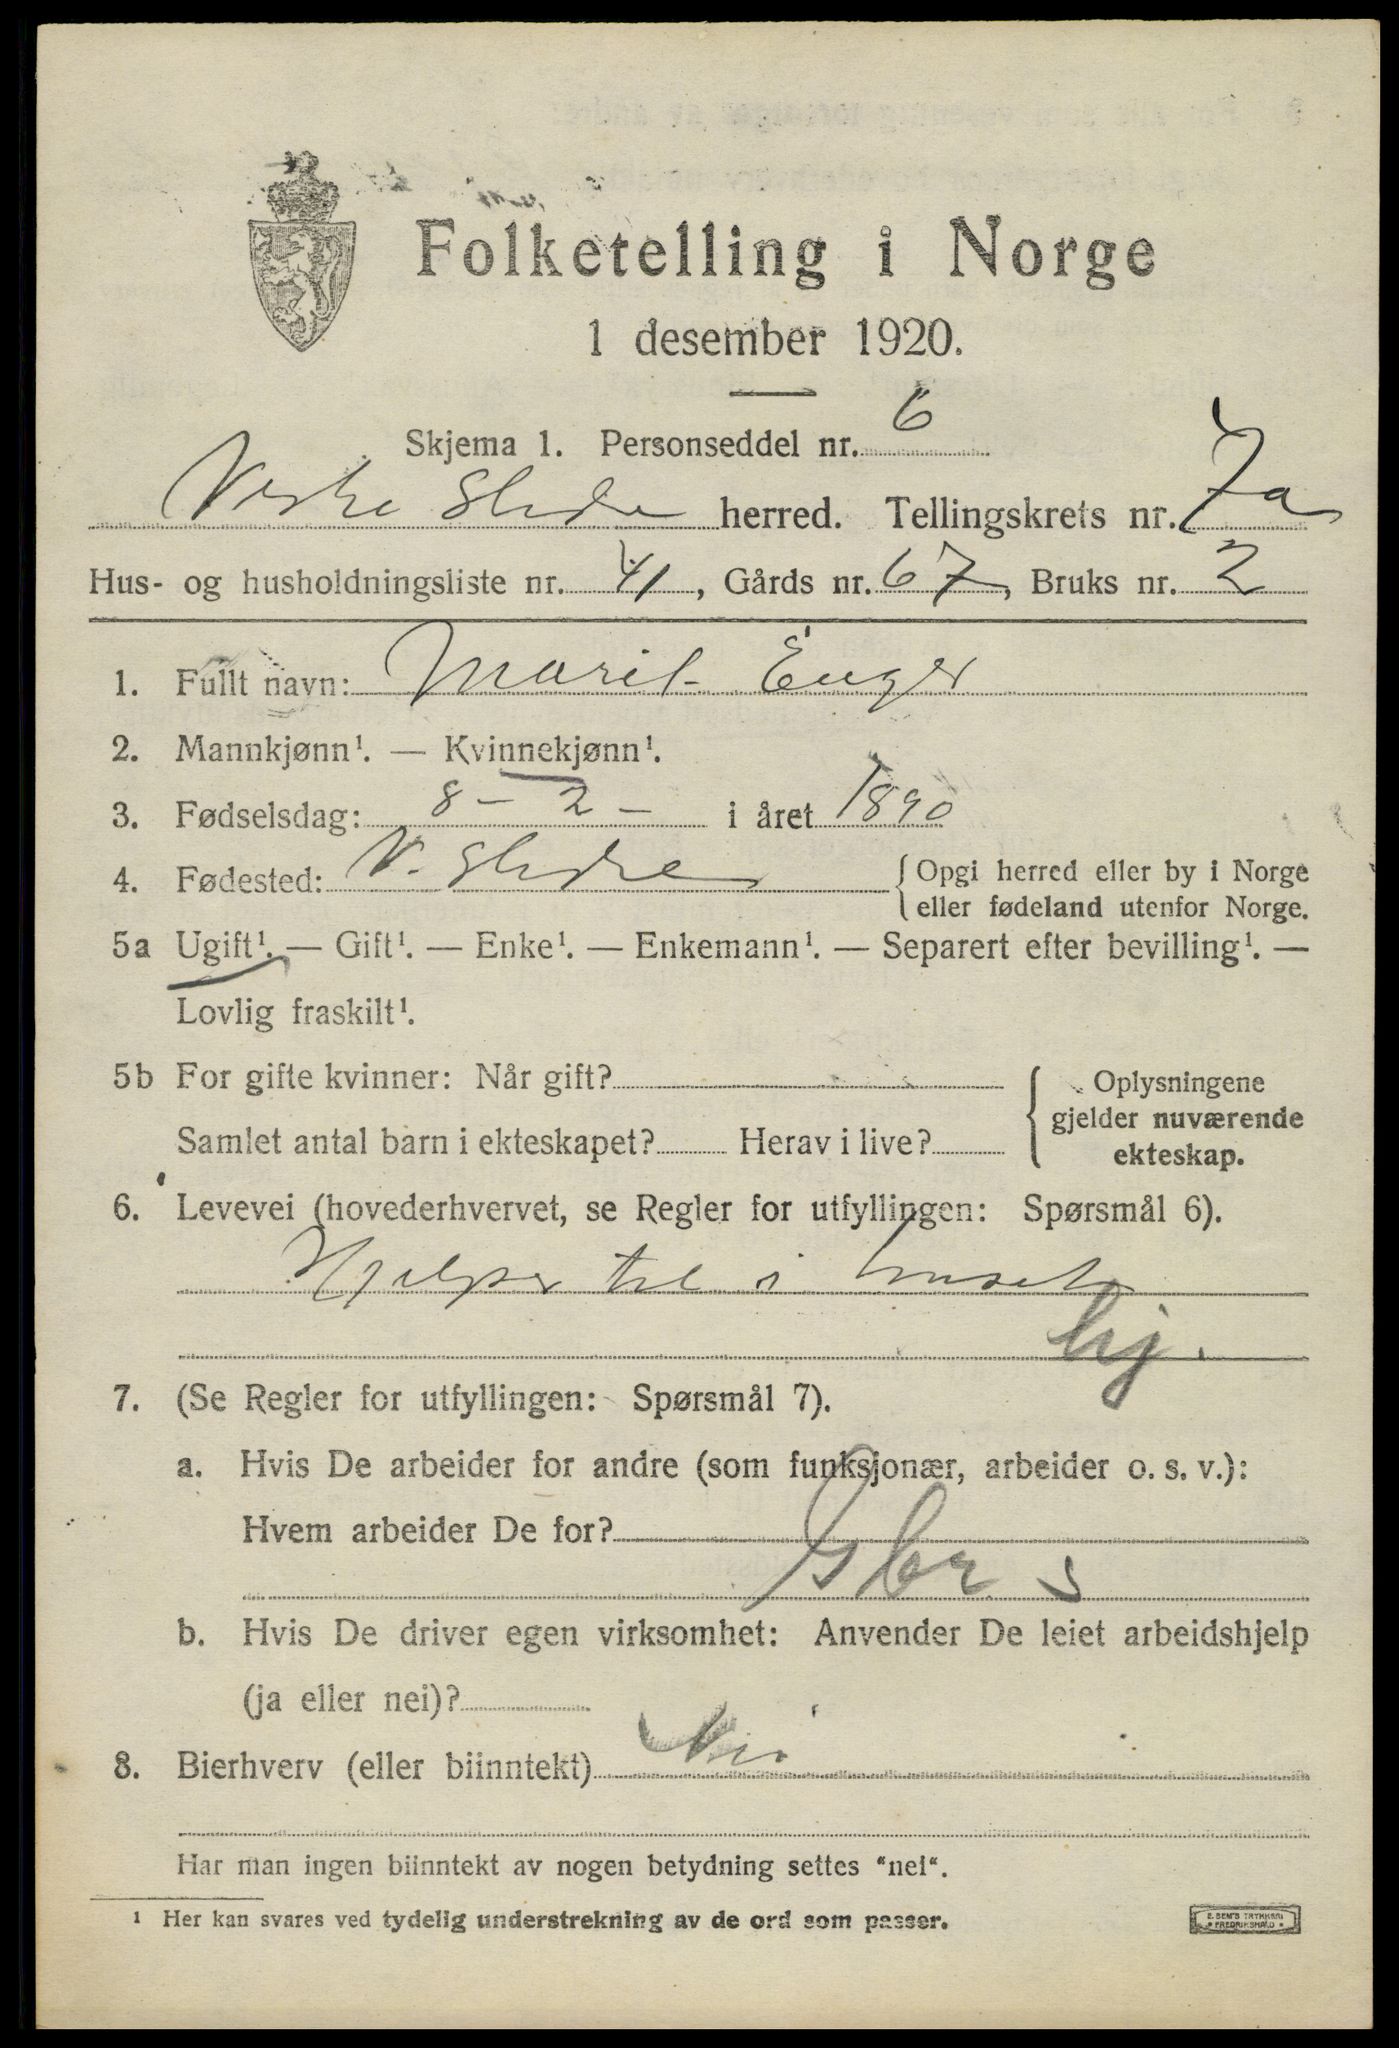 Folketelling i Norge
1 desember 1920.
Skjema 1. Personseddel nr. 6
Vestre Slidre herred. Tellingskrets nr. 7a
Hus- og husholdningsliste nr. 41, Gårds nr. 67, Bruks nr. 2
1. Fullt navn: Marit Enger
2. Mannkjønn¹. — Kvinnekjønn¹.
3. Fødselsdag: 8 - 2 - i året 1890
4. Fødested: V. Slidre {Opgi herred eller by i Norge
eller fødeland utenfor Norge.
5a Ugift¹. — Gift¹. — Enke¹. — Enkemann¹. — Separert efter bevilling¹. —
Lovlig fraskilt¹.
5b For gifte kvinner: Når gift?
Samlet antal barn i ekteskapet? Herav i live?
{Oplysningene
gjelder nuværende
ekteskap.
6. Levevei (hovederhvervet, se Regler for utfyllingen: Spørsmål 6).
Hjelper til i huset
hj.
7. (Se Regler for utfyllingen: Spørsmål 7).
a. Hvis De arbeider for andre (som funksjonær, arbeider o. s. v.):
Hvem arbeider De for?
Gbr s
b. Hvis De driver egen virksomhet: Anvender De leiet arbeidshjelp
(ja eller nei)?
8. Bierhverv (eller biinntekt) Nei
Har man ingen biinntekt av nogen betydning settes "nei".
¹ Her kan svares ved tydelig understrekning av de ord som passer.
E. SEM'S TRYKKERI
FREDRIKSHALD